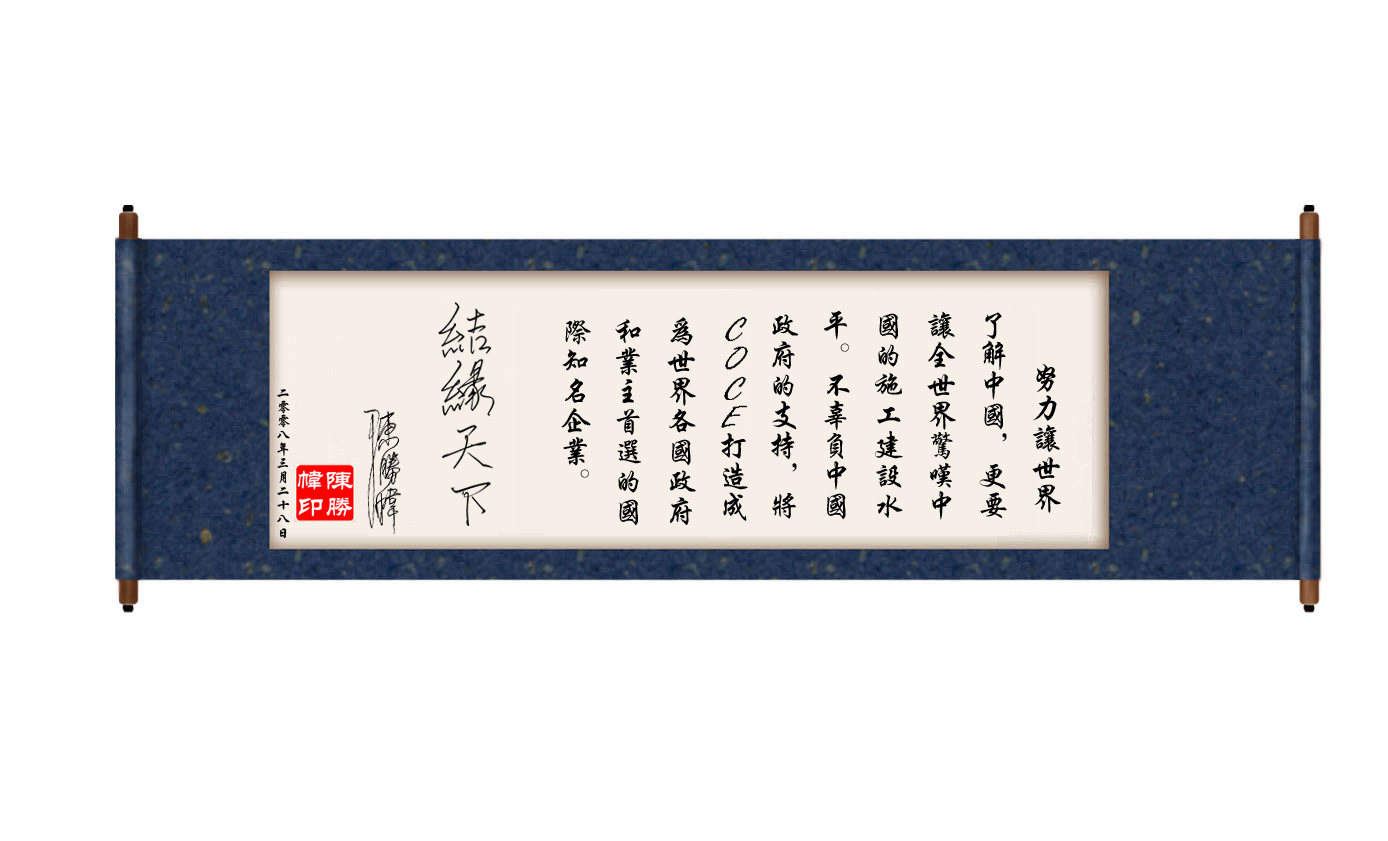 努力讓世界
了解中國，更要
讓全世界驚嘆中
國的施工建設水
平。不辜負中國
政府的支持，將
COCE打造成
為世界各國政府
和業主首選的國
際知名企業。
結緣天下
陳勝幃
陳勝幃印
二零零八年三月二十八日